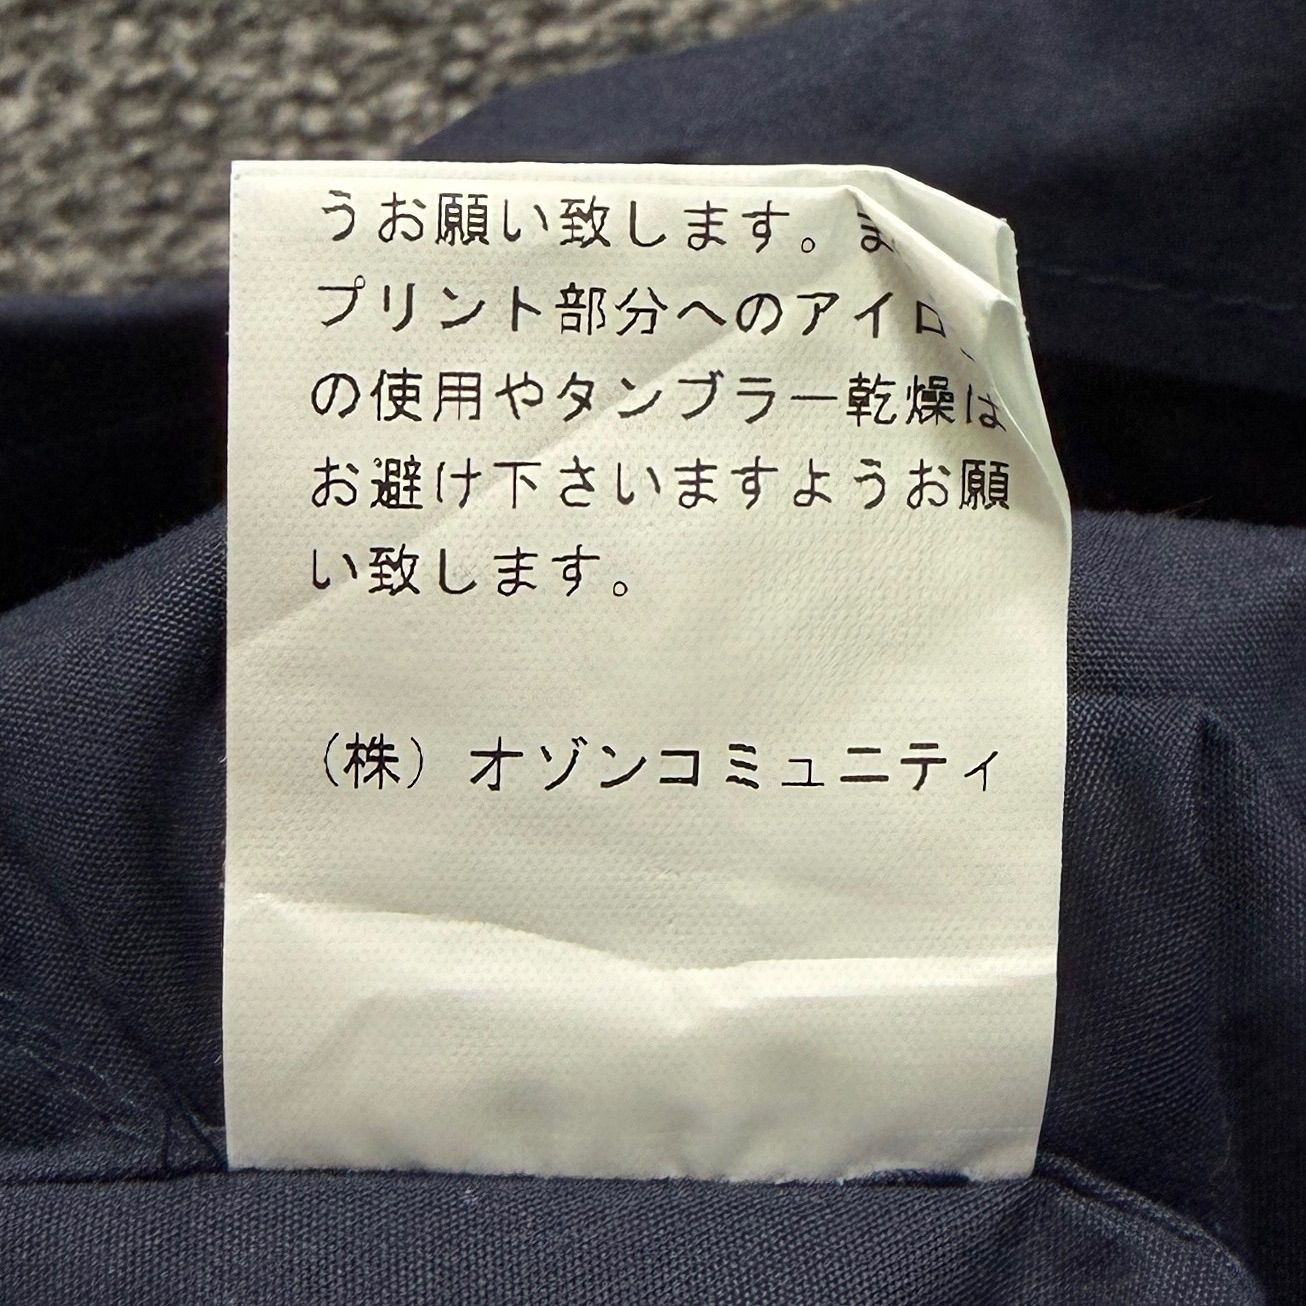 うお願い致します。
プリント部分へのアイロ
の使用やタンブラー乾燥は
お避け下さいますようお願
い致します。
(株) オゾンコミュニティ